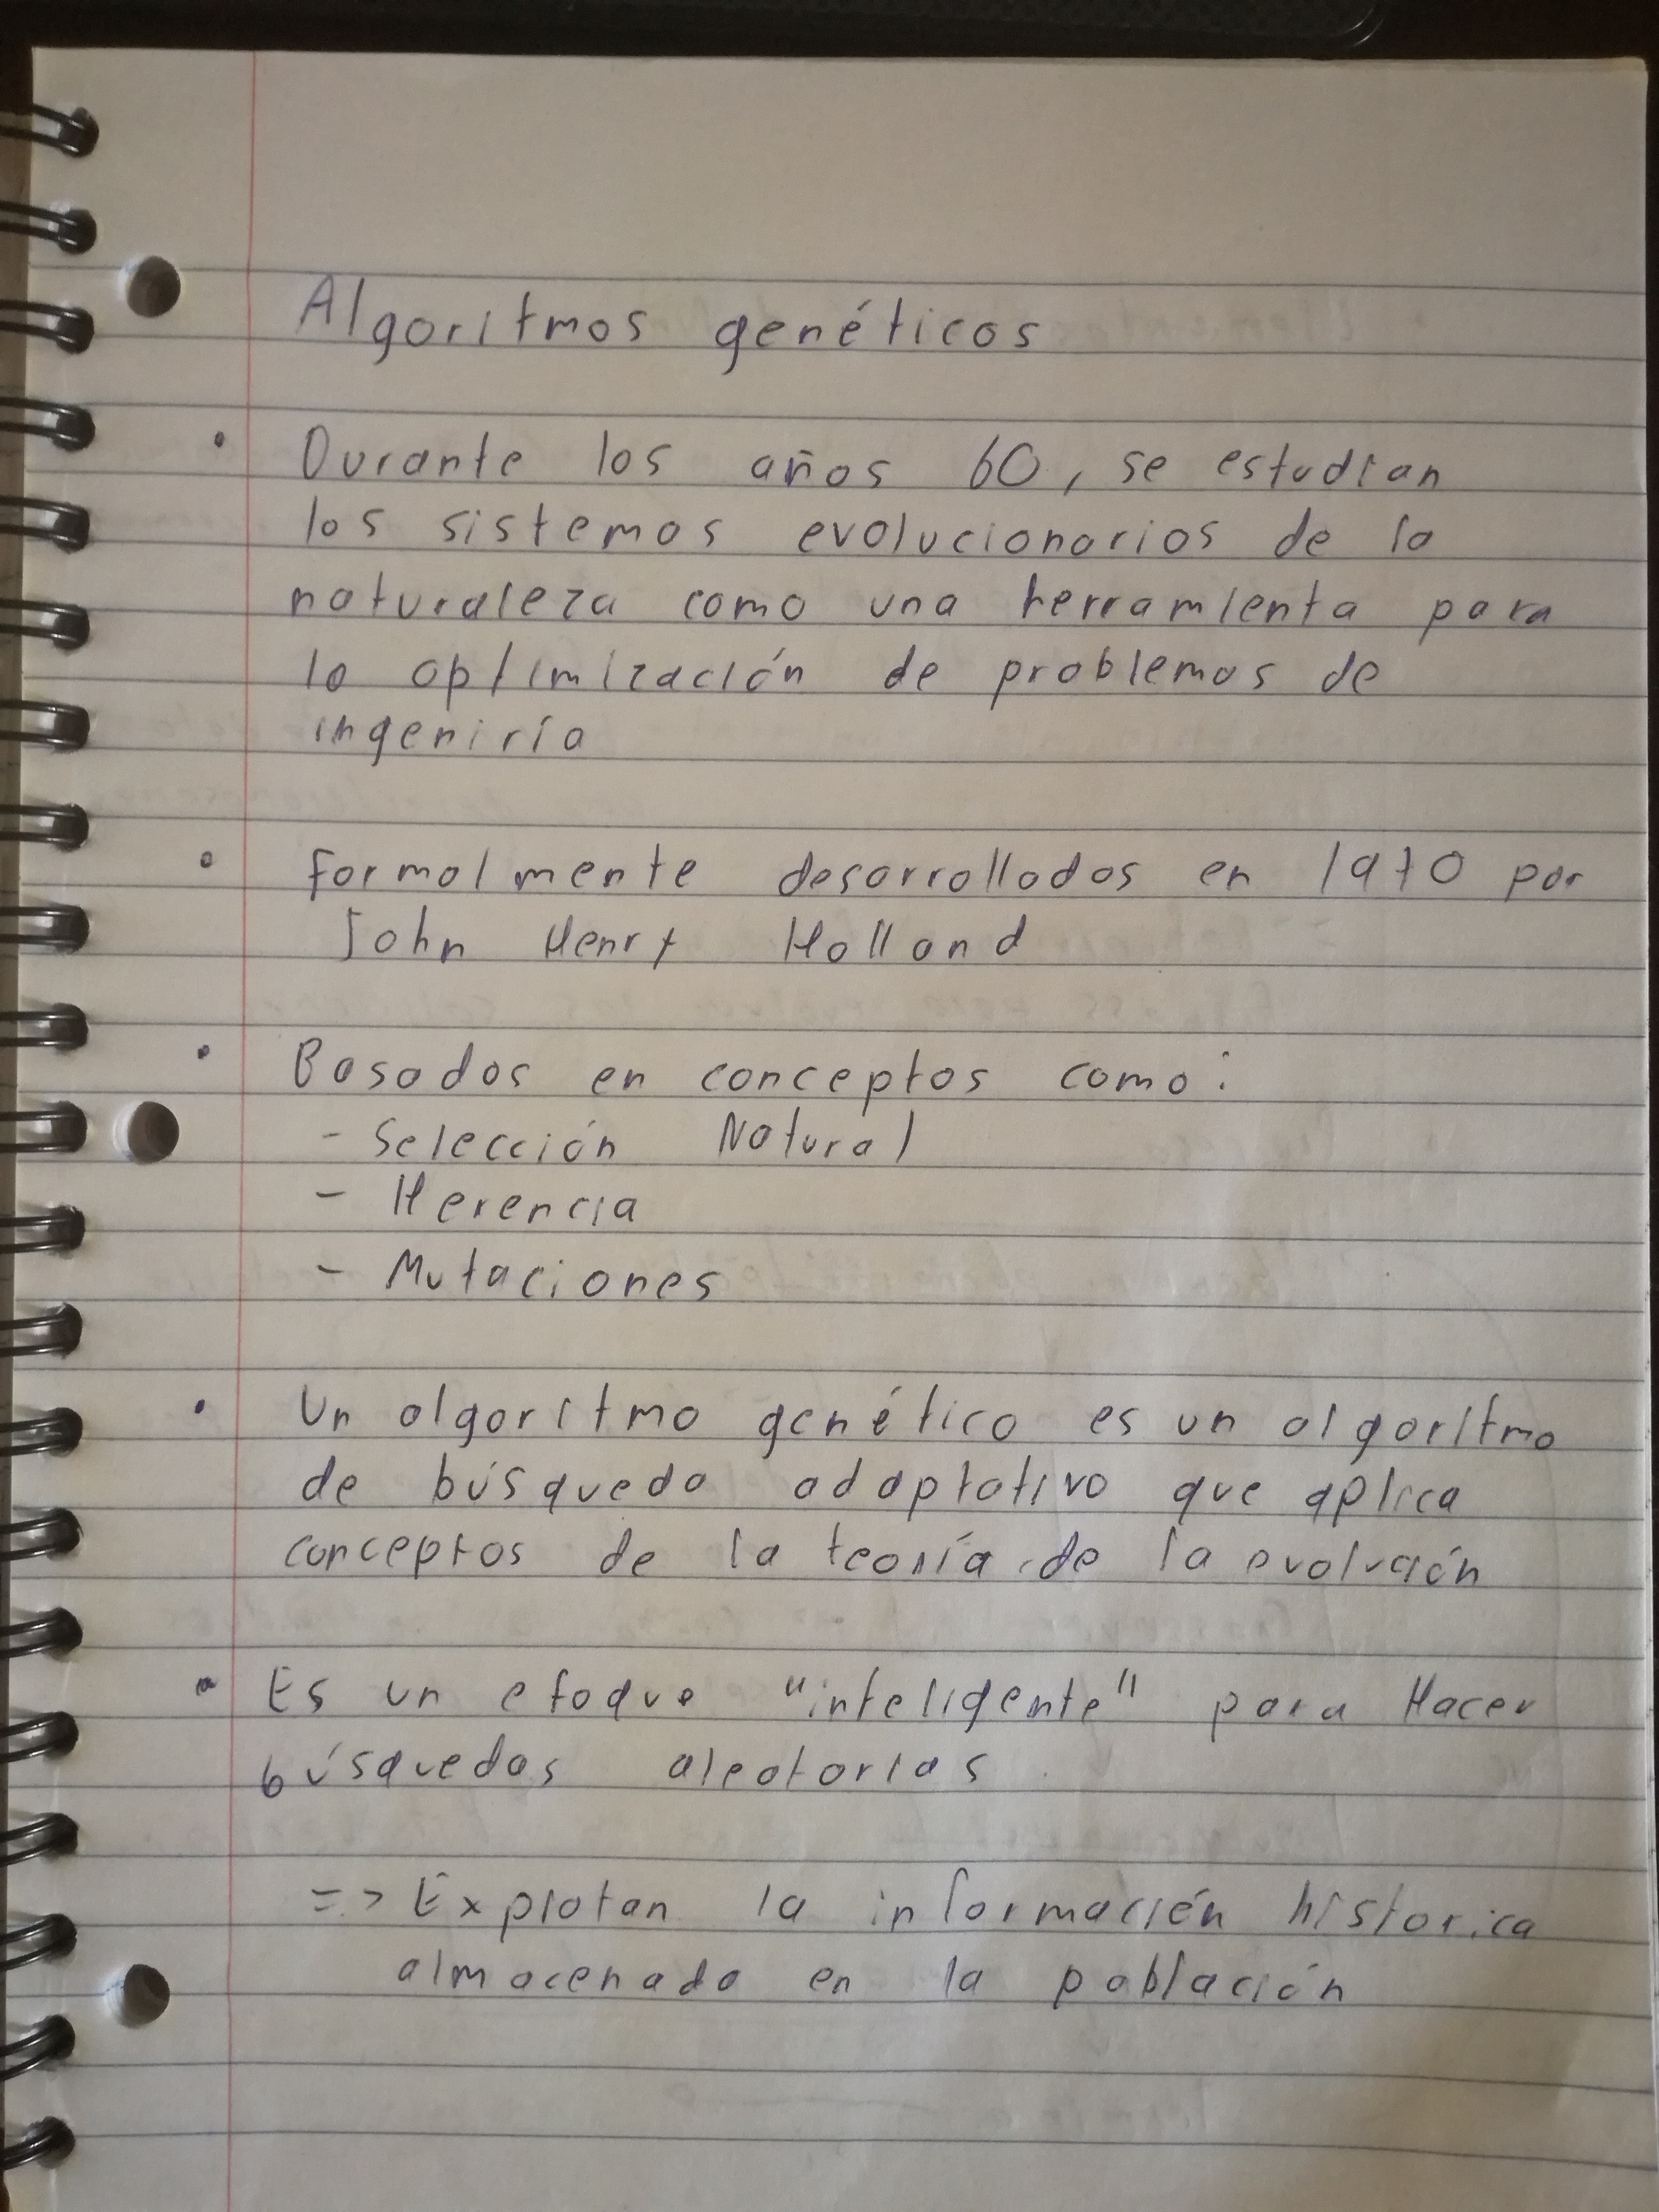 Algoritmos genéticos
• Durante los años 60, se estudian
los sistemas evolucionarios de la
naturaleza como una herramienta para
la optimización de problemas de
ingeniría
• formalmente desarrollados en 1970 por
John Henry Holland
• Basados en conceptos como:
- Selección Natural
- Herencia
- Mutaciones
• Un algoritmo genético es un algoritmo
de búsqueda adaptativo que aplica
conceptos de la teoría de la evolución
• Es un efoque "inteligente" para Hacer
búsquedas aleatorias
=> Explotan la información historica
almacenada en la población